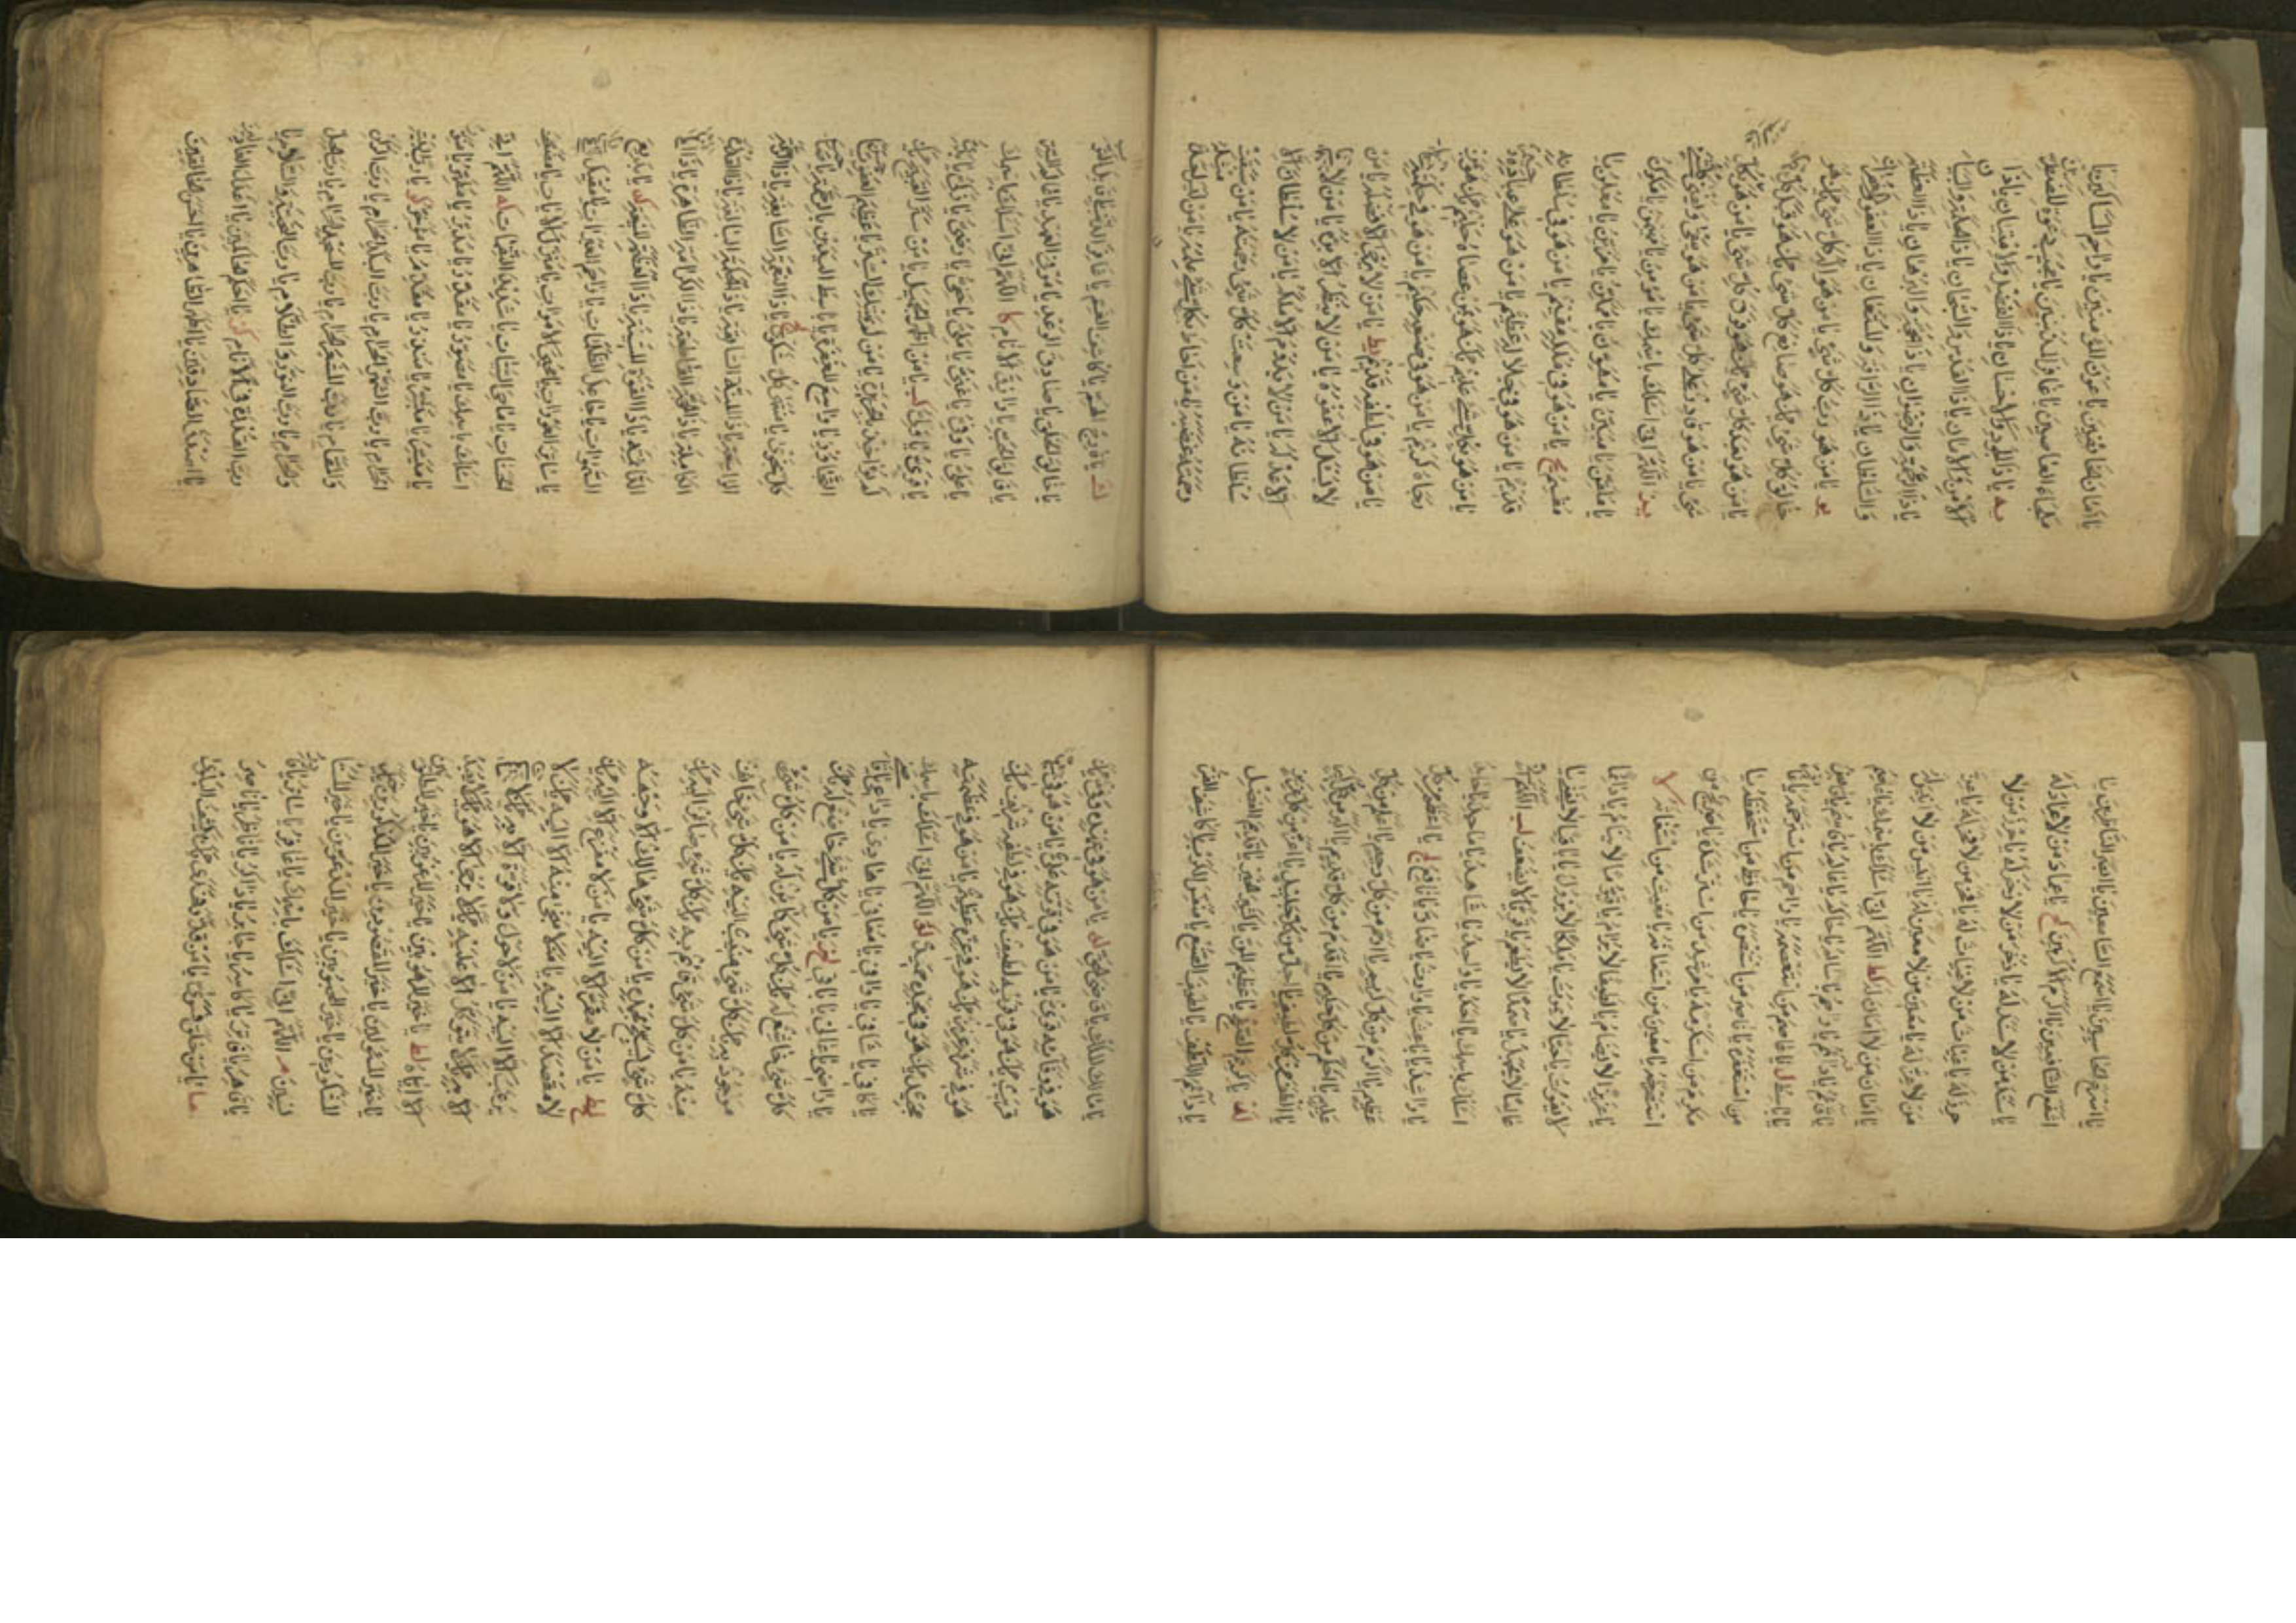 يا أمان الخائفين يا عون المؤمنين يا راحم المساكين يا
ملجأ العاصين يا غافر المذنبين يا مجيب دعوة المضطرين
يه يا ذا الجود والاحسان يا ذا الفضل والامتنان يا ذا
الامن والامان يا ذا القدس والسبحان يا ذا الحكمة والبيان
يا ذا الرحمة والرضوان يا ذا الحجة والبرهان يا ذا العظمة
والسلطان يا ذا الرأفة والمستعان يا ذا العفو والغفران
يو يا من هو رب كل شيء يا من هو اله كل شيء يا من هو
خالق كل شيء يا من هو صانع كل شيء يا من هو قبل كل شيء
يا من هو بعد كل شيء يا من هو فوق كل شيء يا من هو عالم بكل
شيء يا من هو قادر على كل شيء يا من هو يبقى ويفنى كل شيء
يز اللهم اني اسألك باسمك يا مؤمن يا مهيمن يا مكون
يا ملقن يا مبين يا مهون يا ممكن يا مزين يا معلن يا
مقسم يح يا من هو في ملكه مقيم يا من هو في سلطانه
قديم يا من هو في جلاله عظيم يا من هو على عباده رحيم
يا من هو بكل شيء عليم يا من هو بمن عصاه حليم يا من هو بمن
رجاه كريم يا من هو في صنعه حكيم يا من هو في حكمته لطيف
يا من هو في لطفه قديم يط يا من لا يرجى الا فضله يا من
لا يسئل الا عفوه يا من لا ينظر الا بره يا من لا يخاف
الا عدله يا من لا يدوم الا ملكه يا من لا سلطان الا
سلطانه يا من وسعت كل شيء رحمته يا من سبقت
رحمته غضبه يا من احاط بكل شيء علمه يا من ليس احد مثله
ك يا فارج الهم يا كاشف الغم يا غافر الذنب يا قابل التوب
يا خالق الخلق يا صادق الوعد يا موفي العهد يا عالم السر
يا فالق الحب يا رازق الانام كا اللهم اني اسألك باسمك
يا علي يا وفي يا غني يا ملي يا حفي يا رضي يا زكي يا بدي
يا قوي يا ولي كب يا من اظهر الجميل يا من ستر القبيح يا من
لم يؤاخذ بالجريرة يا من لم يهتك الستر يا عظيم العفو يا حسن
التجاوز يا واسع المغفرة يا باسط اليدين بالرحمة يا صاحب
كل نجوى يا منتهى كل شكوى كج يا ذا النعمة السابغة يا ذا الرحمة
الواسعة يا ذا المنة السابقة يا ذا الحكمة البالغة يا ذا القدرة
الكاملة يا ذا الحجة القاطعة يا ذا الكرامة الظاهرة يا ذا العزة
الدائمة يا ذا القوة المتينة يا ذا العظمة المنيعة كد يا بديع
السموات يا جاعل الظلمات يا راحم العبرات يا مقيل العثرات
يا ساتر العورات يا محيي الاموات يا منزل الآيات يا مضعف
الحسنات يا ماحي السيئات يا شديد النقمات كه اللهم اني
اسألك باسمك يا مصور يا مقدر يا مدبر يا مطهر يا منور
يا ميسر يا مبشر يا منذر يا مقدم يا مؤخر كو يا رب البيت
الحرام يا رب الشهر الحرام يا رب البلد الحرام يا رب الركن
والمقام يا رب المشعر الحرام يا رب المسجد الحرام يا رب الحل
والحرام يا رب النور والظلام يا رب التحية والسلام يا
رب القدرة في الانام كز يا احكم الحاكمين يا اعدل العادلين
يا اصدق الصادقين يا اطهر الطاهرين يا احسن الخالقين
يا اسرع الحاسبين يا اسمع السامعين يا ابصر الناظرين يا
اشفع الشافعين يا اكرم الاكرمين كح يا عماد من لا عماد له
يا سند من لا سند له يا ذخر من لا ذخر له يا حرز من لا
حرز له يا غياث من لا غياث له يا فخر من لا فخر له يا عز
من لا عز له يا معين من لا معين له يا انيس من لا انيس له
يا امان من لا امان له كط اللهم اني اسألك باسمك يا عاصم
يا قائم يا دائم يا راحم يا سالم يا حاكم يا عالم يا قاسم يا قابض
يا باسط ل يا عاصم من استعصمه يا راحم من استرحمه يا غافر
من استغفره يا ناصر من استنصره يا حافظ من استحفظه يا
مكرم من استكرمه يا مرشد من استرشده يا صريخ من
استصرخه يا معين من استعانه يا مغيث من استغاثه لا
يا عزيزا لا يضام يا لطيفا لا يرام يا قيوما لا ينام يا دائما
لا يفوت يا حيا لا يموت يا ملكا لا يزول يا باقيا لا يفنى يا
عالما لا يجهل يا صمدا لا يطعم يا قويا لا يضعف لب اللهم اني
اسألك باسمك يا احد يا واحد يا شاهد يا ماجد يا حامد
يا راشد يا باعث يا وارث يا ضار يا نافع لج يا اعظم من كل
عظيم يا اكرم من كل كريم يا ارحم من كل رحيم يا اعلم من كل
عليم يا احكم من كل حكيم يا اقدم من كل قديم يا اكبر من كل كبير
يا الطف من كل لطيف يا اجل من كل جليل يا اعز من كل عزيز
لد يا كريم الصفح يا عظيم المن يا كثير الخير يا قديم الفضل
يا دائم اللطف يا لطيف الصنع يا منفس الكرب يا كاشف الضر
يا مالك الملك يا قاضي الحق له يا من هو في عهده وفي يا من
هو في وفائه قوي يا من هو في قوته علي يا من هو في علوه
قريب يا من هو في قربه لطيف يا من هو في لطفه شريف يا من
هو في شرفه عزيز يا من هو في عزه عظيم يا من هو في عظمته
مجيد يا من هو في مجده حميد لو اللهم اني اسألك باسمك
يا كافي يا شافي يا وافي يا معافي يا هادي يا داعي يا قاضي
يا راضي يا عالي يا باقي لز يا من كل شيء خاضع له يا من
كل شيء خاشع له يا من كل شيء كائن له يا من كل شيء
موجود به يا من كل شيء منيب اليه يا من كل شيء خائف
منه يا من كل شيء قائم به يا من كل شيء صائر اليه يا من
كل شيء يسبح بحمده يا من كل شيء هالك الا وجهه
لح يا من لا مفر الا اليه يا من لا مفزع الا اليه يا من
لا مقصد الا اليه يا من لا منجى منه الا اليه يا من لا
يرغب الا اليه يا من لا حول ولا قوة الا به يا من لا يستعان
الا به يا من لا يتوكل الا عليه يا من لا يرجى الا هو يا من لا يعبد
الا اياه لط يا خير المرهوبين يا خير المرغوبين يا خير المطلوبين
يا خير المسئولين يا خير المقصودين يا خير المذكورين يا خير
المشكورين يا خير المحبوبين يا خير المدعوين يا خير المستأنسين
م اللهم اني اسألك باسمك يا غافر يا ساتر يا قادر
يا قاهر يا فاطر يا كاسر يا جابر يا ذاكر يا ناظر يا ناصر
ما يا من خلق فسوى يا من قدر فهدى يا من يكشف البلوى